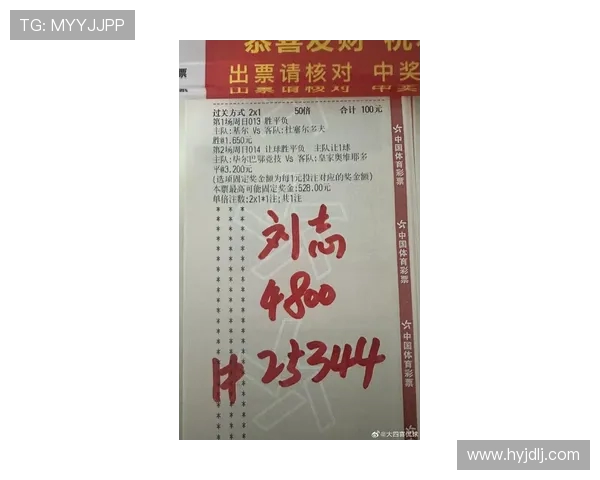 TG: MYYJJPP
恭喜发财 祝
票 出票请核对 中奖
过关方式 2x1 50倍 合计 100元
第1场周日013 胜平负
主队:基尔 Vs 客队:杜塞尔多夫
胜@1.650元
第2场周日014 让球胜平负 主队让1球
主队:毕尔巴鄂竞技 Vs 客队:皇家奥维耶多
平@3.200元
(选项固定奖金额为每1元投注对应的奖金额)
本票最高可能固定奖金:528.00元
单倍注数:2x1*1注;共1注
刘志
4800
中 25344
中国体育彩票
中国体育彩票
中国体育彩票
www.hyjdlj.com